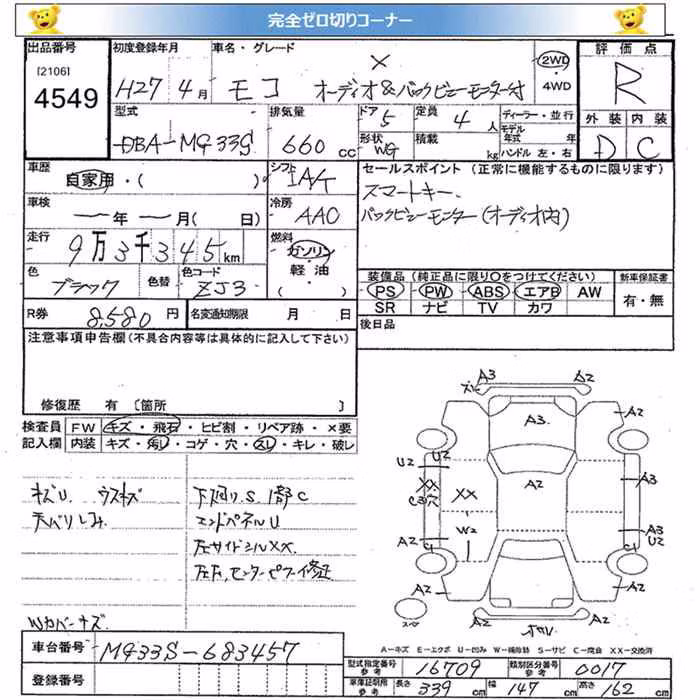 完全ゼロ切りコーナー
出品番号
[2106]
4549
初度登録年月
H27年4月
車名・グレード
モコ X
オーディオ&バックビューモニター付
2WD
・4WD
評価点
R
外装 内装
D C
型式
DBA-MG33S
排気量
660 cc
ドア
5
定員
4 人
形状
WG
積載
kg
ディーラー・並行
モデル年式 年
ハンドル 左・右
車歴
自家用・( )
シフト
IAA
車検
年 月( 日)
冷房
AAC
走行
9万3千345km
燃料
ガソリン・
軽油
( )
色
ブラック
色替
色コード
ZJ3
R券
8,580 円
名変通知期限 月 日
セールスポイント (正常に機能するものに限ります)
スマートキー、
バックビューモニター(オーディオ内)
装備品 (純正品に限り○をつけてください)
PS PW ABS エアB AW
SR ナビ TV カワ
新車保証書
有・無
後日品
注意事項申告欄(不具合内容等は具体的に記入して下さい)
修復歴 有 〔箇所 〕
検査員
記入欄
FW キズ・飛石・ヒビ割・リペア跡・×要
内装 キズ・汚レ・コゲ・穴・スレ・キレ・破レ
キズU ウスキズ
天バリしみ
Wカバーキズ
下廻りS 1部C
エンドパネルU
左サイドシルXX
左F,センターピラー修正
A3
X1
A2
A3
A2
U2
U2
XX
C3穴
XX
A2
A3
W2
A3
U2
A2
C1
C1
A2
A2
A2
A2
スペア
A-キズ E-エクボ U-凹み W-補修跡 S-サビ C-腐食 XX-交換済
車台番号
MG33S-683457
登録番号
型式指定番号
参考
16709
類別区分番号
参考
0017
車庫証明用
参考
長さ 339 cm 幅 147 cm 高さ 162 cm